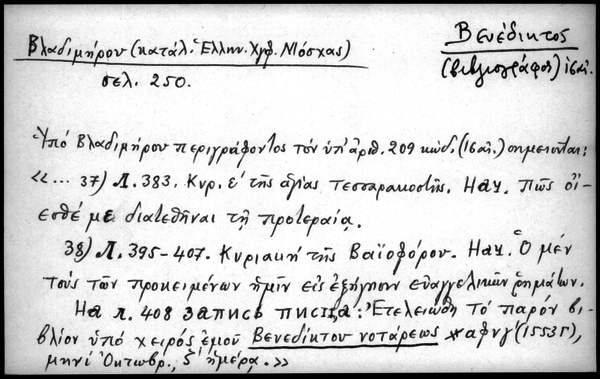 Βλαδιμήρου (κατάλ. Ἑλλην. Χγφ. Μόσχας)
σελ. 250.
Βενέδικτος
(βιβλιογράφος) ιςαἰ.
Ὑπό Βλαδιμήρου περιγράφοντος τόν ὑπ' ἀριθ. 209 κώδ. (16 αἰ.) σημειοῦται:
«... 37) Л. 383. Κυρ. ε' τῆς ἁγίας τεσσαρακοστῆς. Нач. Πῶς οἴ-
εσθέ με διατεθῆναι τῇ προτεραίᾳ.
38) Л. 395-407. Κυριακή τῆς Βαϊοφόρου. Нач. Ὁ μέν
τούς τῶν προκειμένων ἡμῖν εἰς ἐξήγησιν εὐαγγελικῶν ῥημάτων.
На л. 408 запись писца: Ἐτελειώθη τό παρόν βι-
βλίον ὑπό χειρός ἐμοῦ Βενεδίκτου νοτάρεως αφνγ' (1553г),
μηνί Ὀκτωβρ., ς' ἡμέρᾳ.»